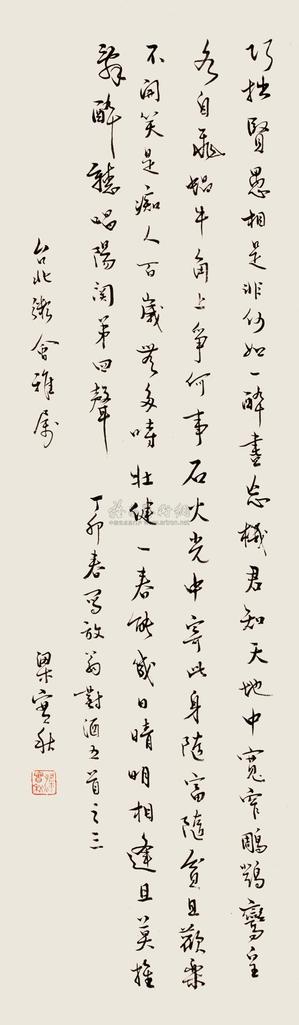 巧拙賢愚相是非何如一醉盡忘機君知天地中寬窄鵰鶚鸞皇
各自飛蝸牛角上爭何事石火光中寄此身隨富隨貧且歡樂
不開笑是痴人百歲無多時壯健一春能幾日晴明相逢且莫推
辭醉聽唱陽關第四聲
丁卯春寫放翁對酒五首之三
台北粥會雅屬
梁實秋